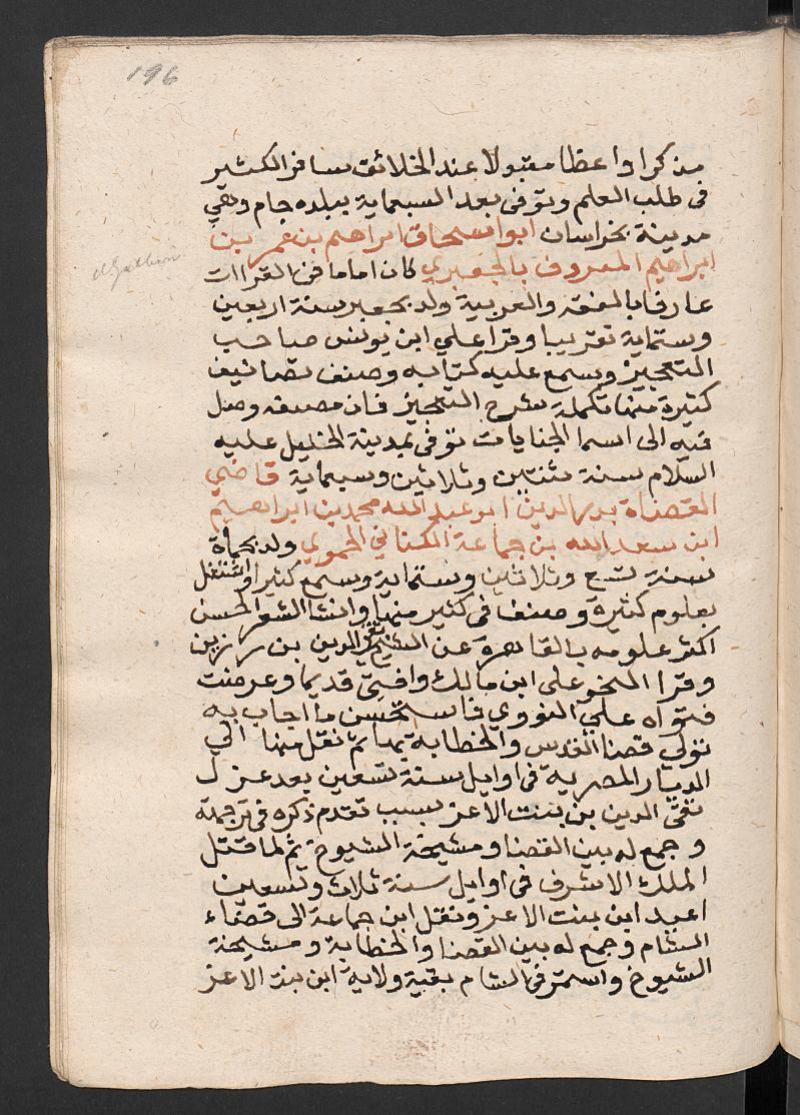 196
مذكرا واعظا مقبولا عند الخلائق سافر الكثير
فى طلب العلم وتوفى بعد السبعماية ببلده جام وهي
مدينة بخراسان ابو اسحاق ابراهيم بن عمر بن
ابراهيم المعروف بالجعبري كان اماما فى القراات
عارفا بالفقه والعربية ولد بجعبر سنة اربعين
وستماية تقريبا وقرا على ابن يونس صاحب
التعجيز وسمع عليه كتابه وصنف تصانيف
كثيرة منها تكملة شرح التعجيز فان مصنفه وصل
فيه الى اسما الجنايات توفى بمدينة الخليل عليه
السلام سنة ثنتين وثلاثين وسبعماية قاضي
القضاة بدر الدين ابو عبد الله محمد بن ابراهيم
ابن سعد الله بن جماعة الكناني الحموي ولد بحماة
سنة تسع وثلاثين وستماية وسمع كثيرا واشتغل
بعلوم كثيرة وصنف فى كثير منها وانشا الشعر الحسن
اكثر علومه بالقاهرة عن الشيخ تقي الدين بن رزين
وقرا النحو على ابن مالك وافتى قديما وعرضت
فتواه على النووي فاستحسن ما اجاب به
تولى قضا القدس والخطابة بها ثم نقل منها الى
الديار المصرية فى اوايل سنة تسعين بعد عزل
تقى الدين بن بنت الاعز بسبب تقدم ذكره فى ترجمته
وجمع له بين القضا ومشيخة الشيوخ ثم لما قتل
الملك الاشرف فى اوايل سنة ثلاث وتسعين
اعيد ابن بنت الاعز ونقل ابن جماعة الى قضاء
الشام وجمع له بين القضا والخطابة ومشيخة
الشيوخ واستمر فى الشام بقية ولاية ابن بنت الاعز